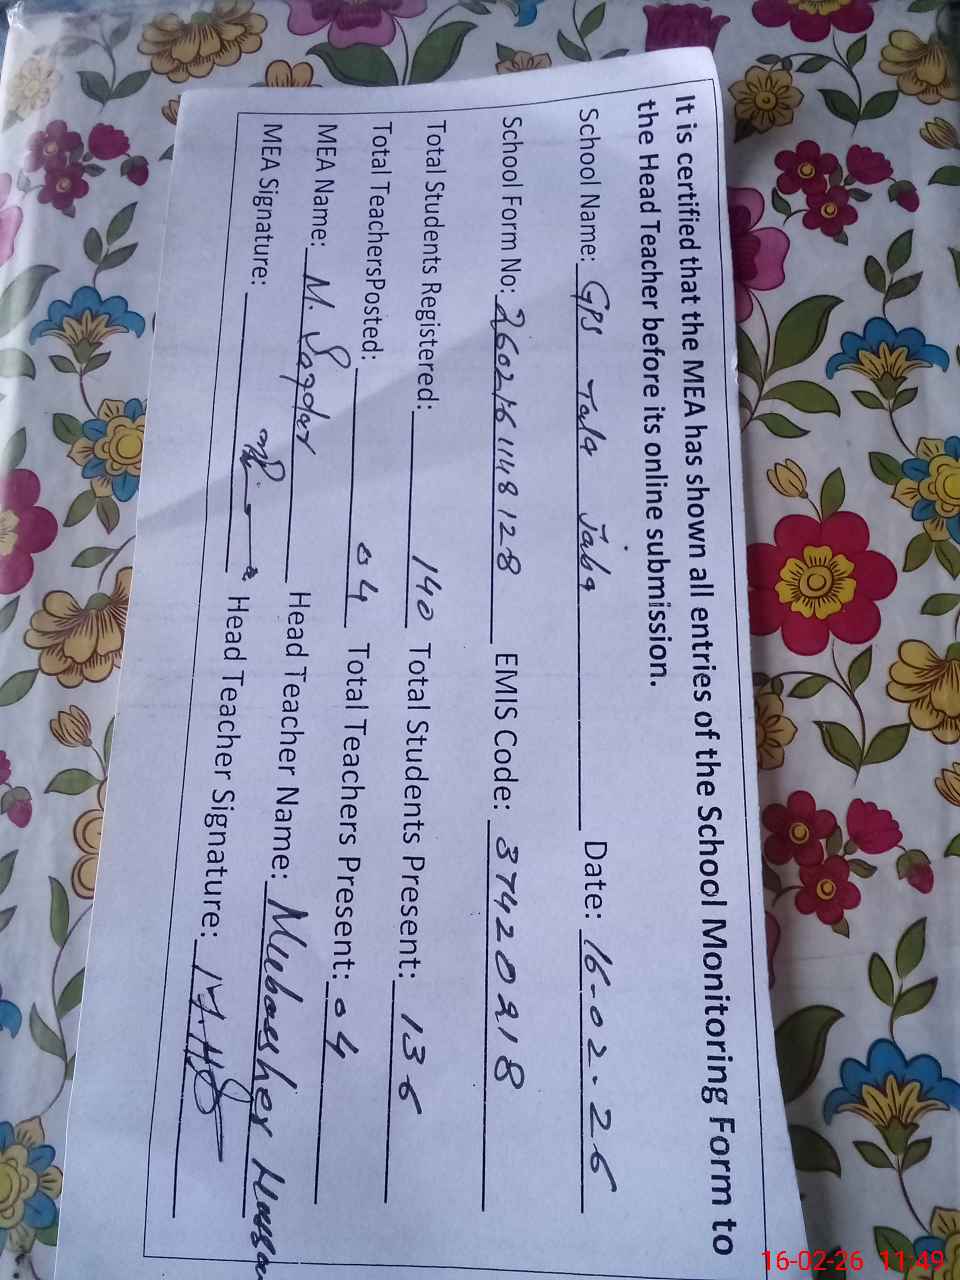 It is certified that the MEA has shown all entries of the School Monitoring Form to
the Head Teacher before its online submission.
School Name: GPS Tala Jaba Date: 16-02-26
School Form No: 2602161148128 EMIS Code: 37420218
Total Students Registered: 140 Total Students Present: 136
Total TeachersPosted: 04 Total Teachers Present: 04
MEA Name: M. Safdar Head Teacher Name: Mubasher Hassan
MEA Signature: Head Teacher Signature:
16-02-26 11:49